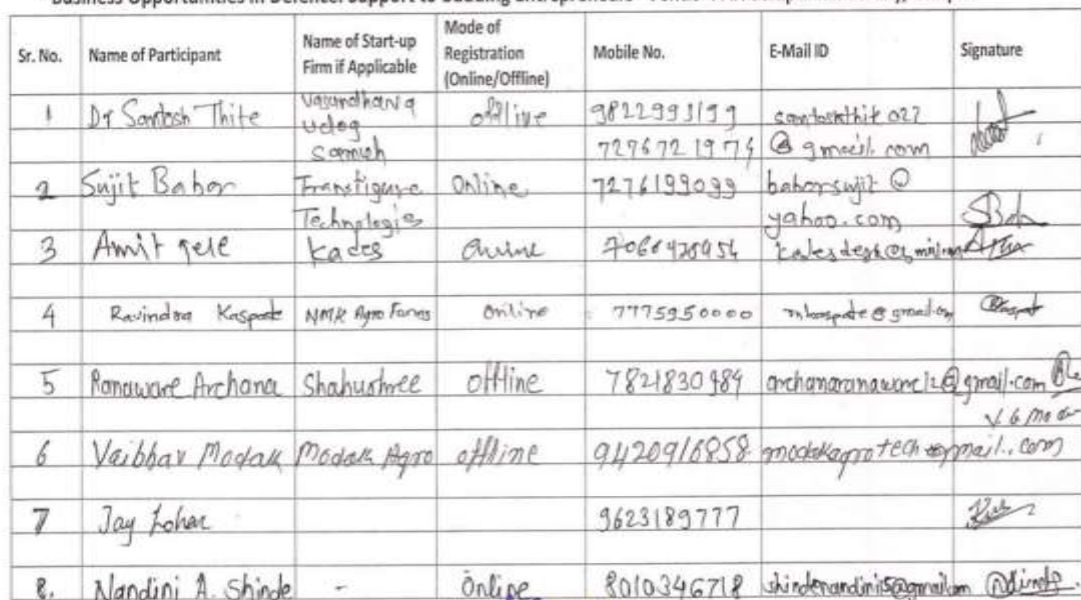 Business Opportunities in Defence: Support to Budding Entrepreneurs
Sr. No. Name of Participant Name of Start-up Firm if Applicable Mode of Registration (Online/Offline) Mobile No. E-Mail ID Signature
1 Dr Santosh Thite offline 9822993199
7276721974 @gmail.com
2 Sujit Babar Transfigure Technologies Online 7276199099 babarsujit@
yahoo.com
3 Amit Kades Online
4 Ravindra Kaspate NMK Agro Farms Online 7775950000
5 Ranaware Archana Shahushree offline 7821830984 archanaranaware12@gmail.com
6 Vaibhav Modak Modak Agro offline 9420916858 modakagrotech@gmail.com
7 Jay Lohar 9623189777
8. Nandini A. Shinde - Online 8010346718 shindenandini15@gmail.com